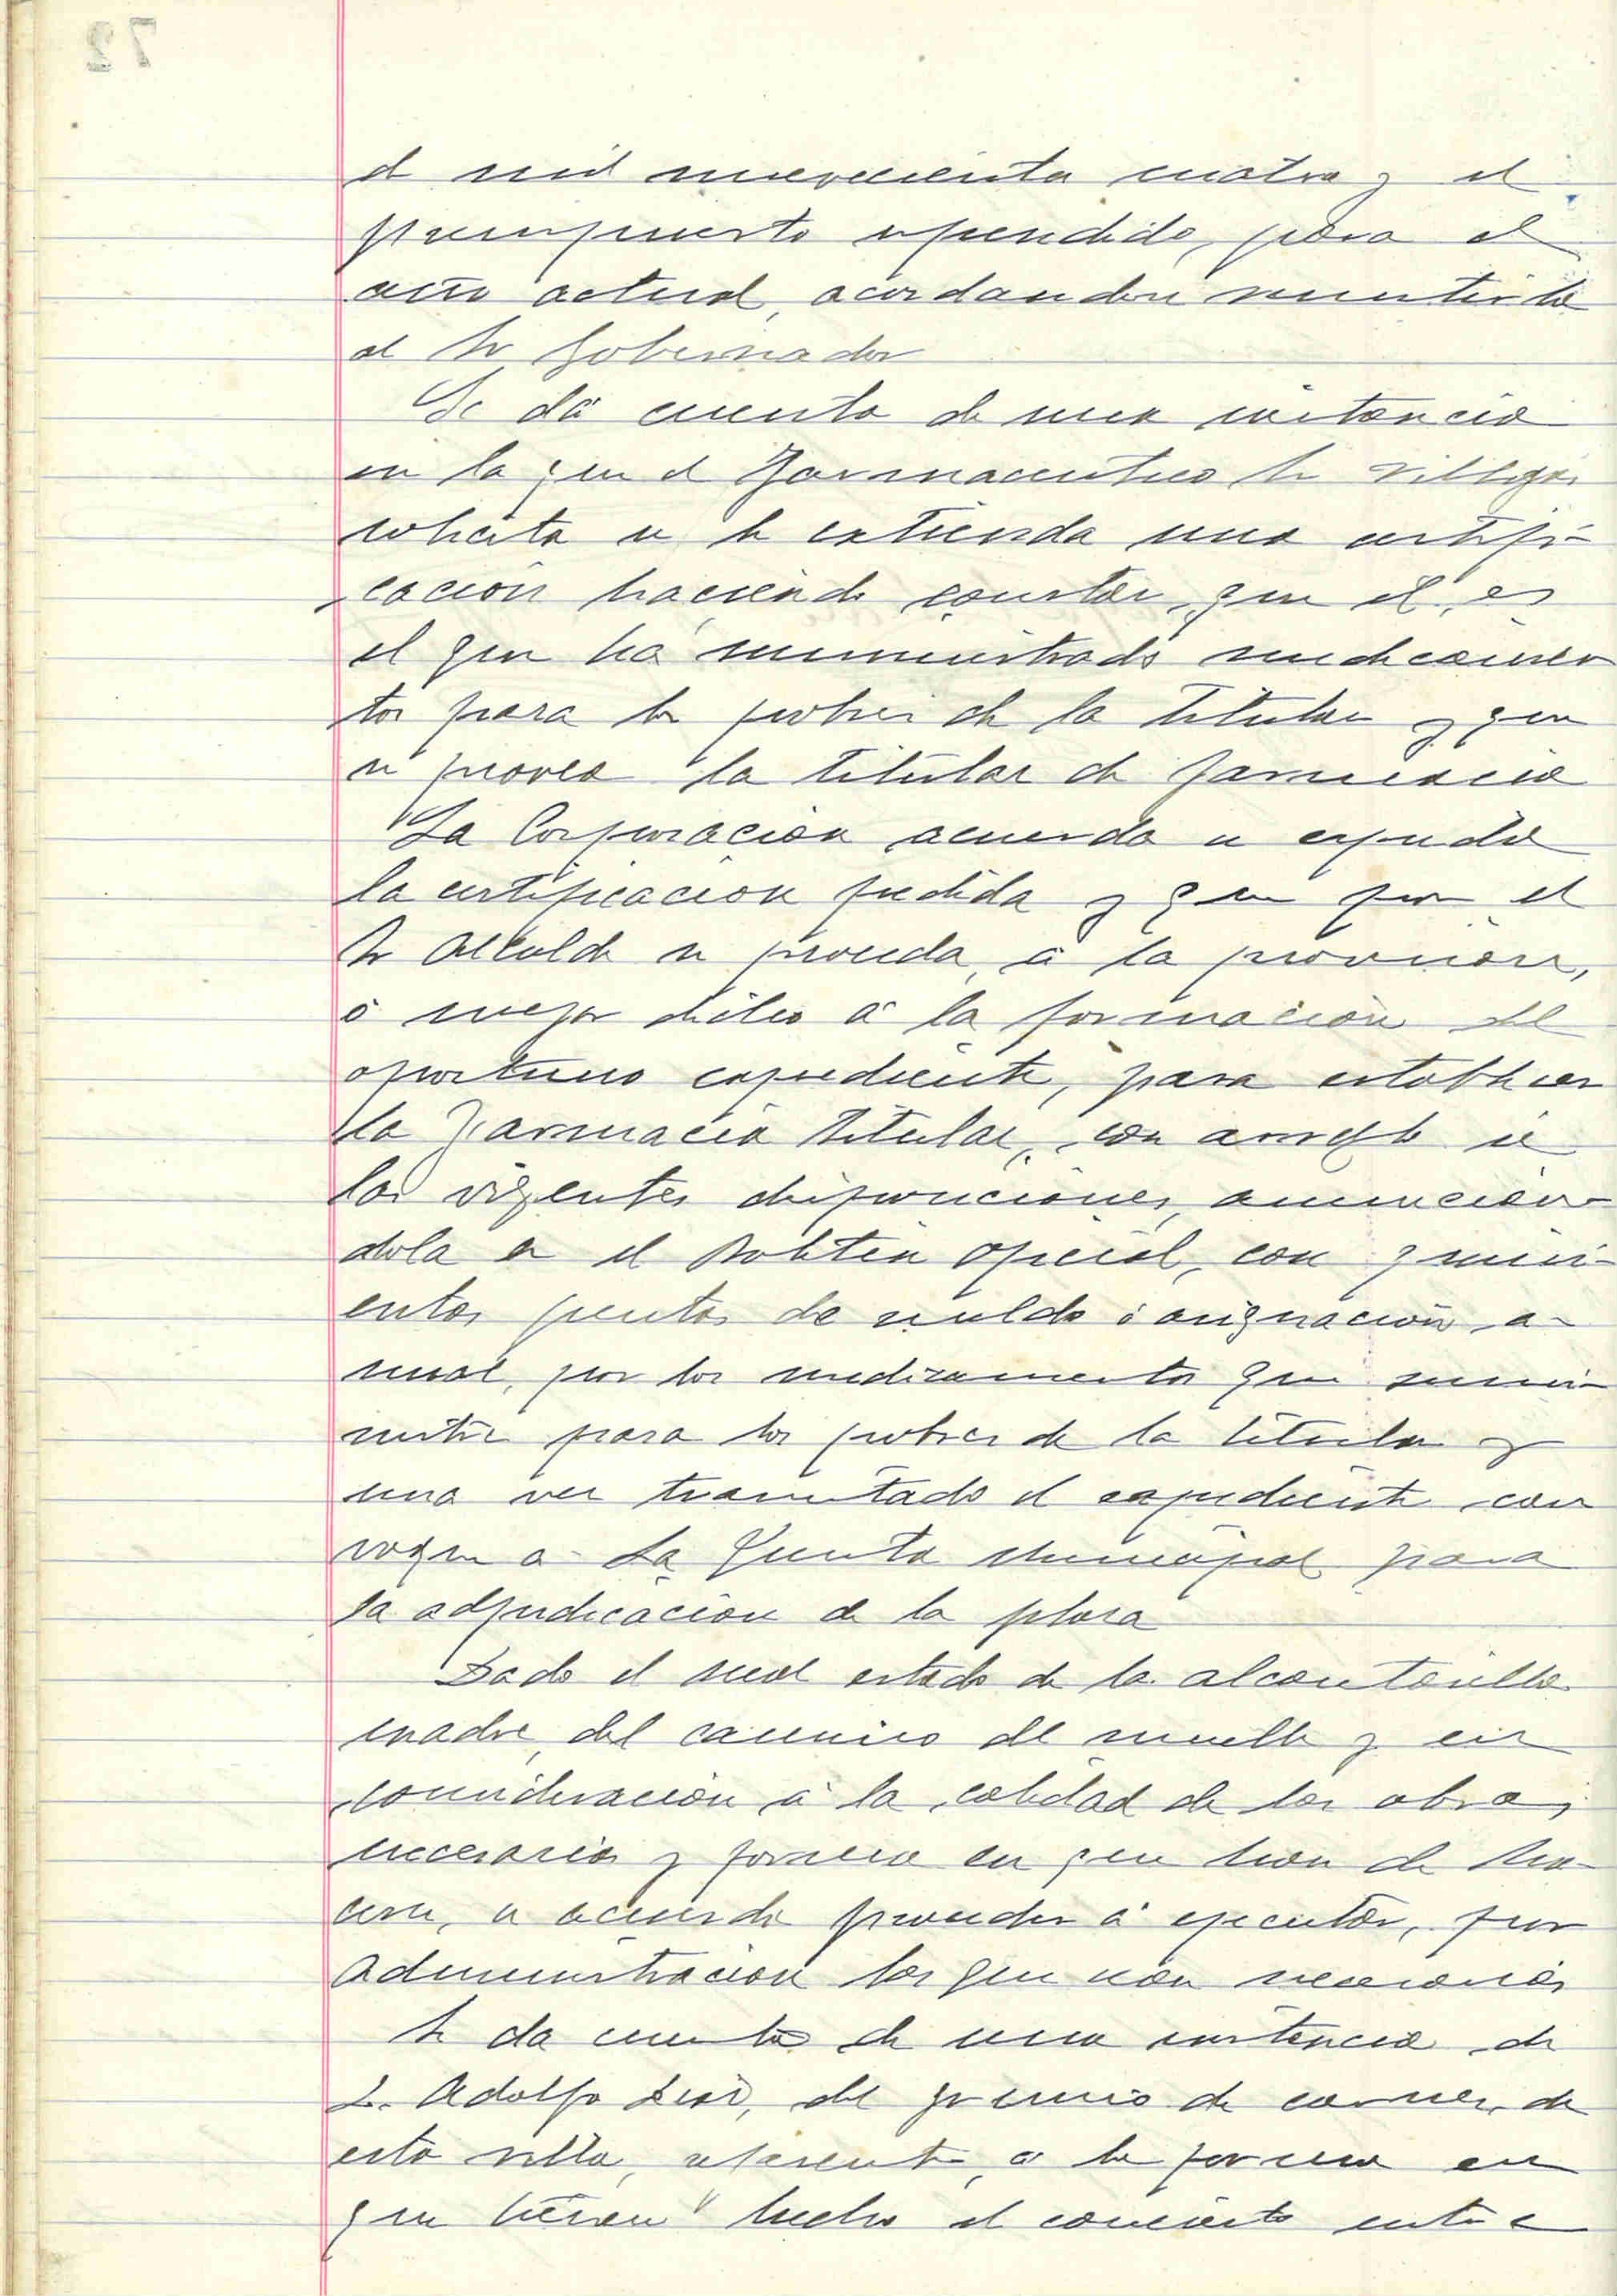 de mil novecientos cuatro y el
presupuesto refundido, para el
año actual, acordandose remitirlo
al Sr Gobernador
Se dá cuenta de una instancia
en la que el Farmaceutico Sr Villegas
solicita se le extienda una certifi-
cacion haciendo constar, que él es
el que ha suministrado medicamen
tos para los pobres de la titular y que
se provea la titular de farmacia
La Corporacion acuerda se expida
la certificacion pedida y que por el
Sr Alcalde se proceda, á la provision,
ó mejor dicho á la formación del
oportuno expediente, para establecer
la Farmacia titular, con arreglo á
las vigentes disposiciones, anuncian-
dola en el Boletin oficial, con quini-
entas pesetas de sueldo ó asignación a-
nual, por los medicamentos que sumi-
nistre para los pobres de la titular y
una vez tramitado el expediente con
voque a la Junta Municipal para
la adjudicacion de la plaza
Dado el mal estado de la alcantarilla
madre, del camino del muelle y en
consideración á la calidad de las obras
necesarias y forma en que han de ha-
cerse, se acuerda proceder á ejecutar, por
Administracion las que sean necesarias
Se da cuenta de una instancia de
D. Adolfo, del gremio de carnes, de
esta villa, referente á la forma en
que tienen hecho el concierto entre